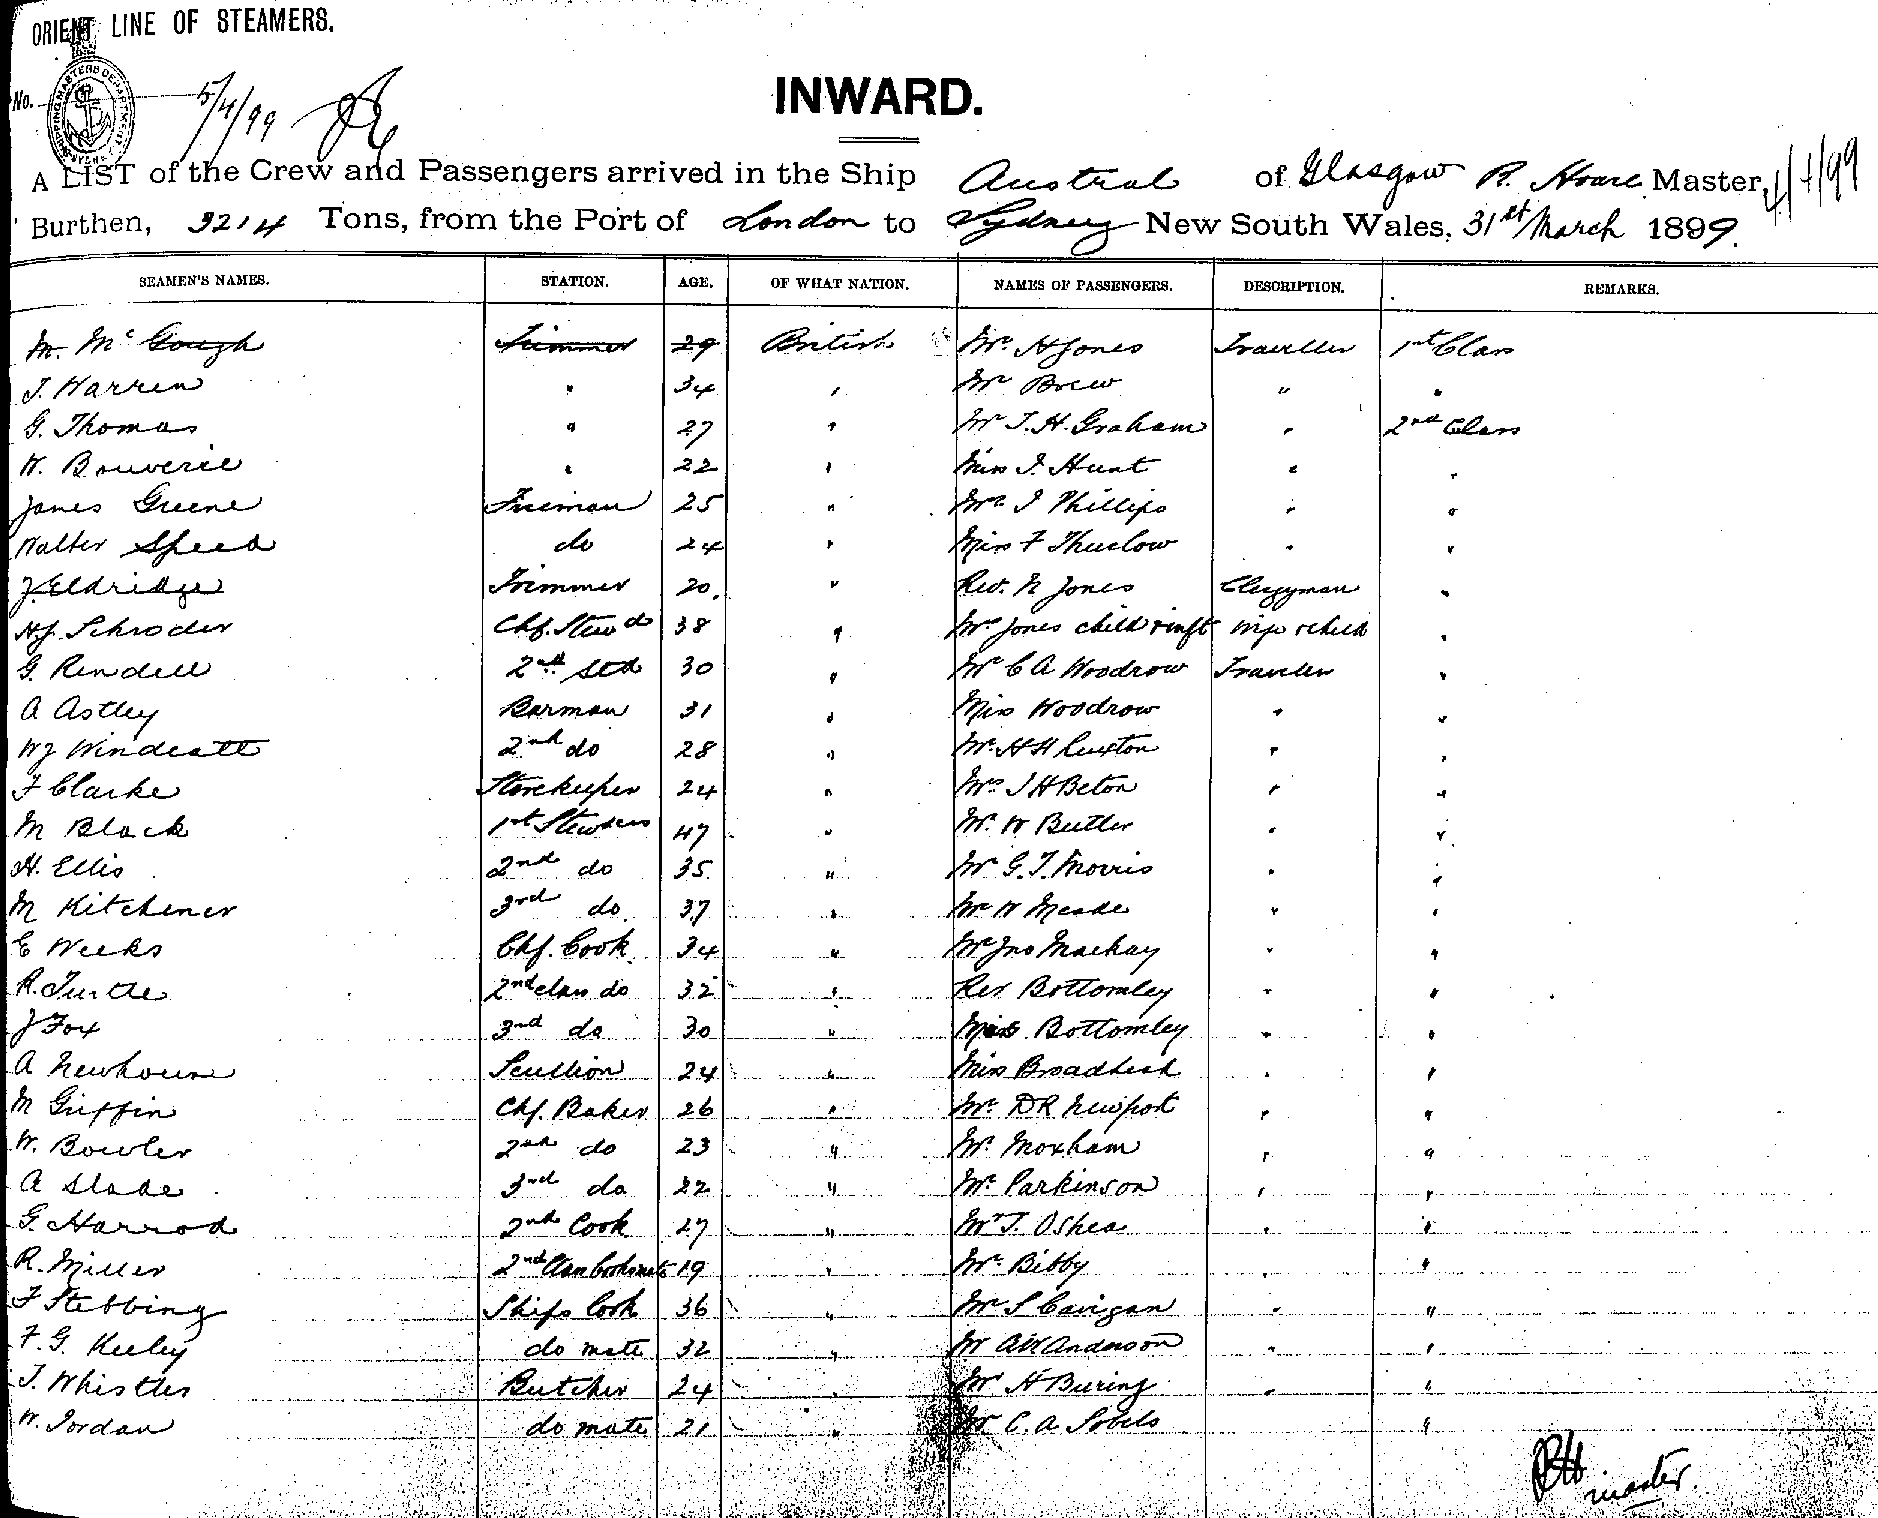 ORIENT LINE OF STEAMERS.
No.
SHIPPING MASTERS DEPARTMENT SYDNEY
5/4/99
INWARD.
A LIST of the Crew and Passengers arrived in the Ship Austral of Glasgow R. Hoare Master, 4/4/99
Burthen, 3214 Tons, from the Port of London to Sydney New South Wales, 31st March 1899.
SEAMEN'S NAMES. STATION. AGE. OF WHAT NATION. NAMES OF PASSENGERS. DESCRIPTION. REMARKS.
M. Mc Gough Trimmer 29 British Mr. H Jones Traveller 1st Class
J. Warren " 34 " Mr Brew " "
G. Thomas " 27 " Mr J. H. Graham " 2nd Class
W. Bouverie " 22 " Miss I. Hunt " "
James Greene Fireman 25 " Mrs I Phillips " "
Walter Speed do 24 " Miss F Thurlow " "
J. Eldridge Trimmer 20. " Rev. N Jones Clergyman "
H.J. Schroder Chf. Stewd 38 " Mrs Jones child & inft wife & child "
G. Rendell 2nd Std 30 " Mr C A Woodrow Traveller "
A Astley Barman 31 " Miss Woodrow " "
WJ Windeatt 2nd do 28 " Mr. H H Luxton " "
F Clarke Storekeeper 24 " Mr. J H Beton " "
M Black 1st Stewdess 47 " Mr. W Butler " "
H. Ellis 2nd do 35 " Mr G. T. Morris " "
M Kitchener 3rd do 37 " Mr W Meade " "
E Weeks Chf. Cook 34 " Mr Jno Mackay " "
R. Turtle 2nd class do 32 " Rev Bottomley " "
J Fox 3rd do 30 " Miss Bottomley " "
A Newhouse Scullion 24 " Miss "
M Griffin Chf. Baker 26 " Mr. DR Newport " "
W. Bowler 2nd do 23 " Mr. Moxham " "
A Slade 3rd do 22 " Mr. Parkinson " "
G. Harrod 2nd Cook 27 " Mr T. OShea " "
R. Miller 2nd Class Cooks mate 19 " Mr. Bibby " "
F Stebbing Ships Cook 36 " Mr S Cavigan " "
F. G. Keeley do mate 32 " Mr AW Anderson " "
J. Whistler Butcher 24 " Mr H Buring " "
W. Jordan do mate 21 " Mr C. A. Sobels "
RH
master.